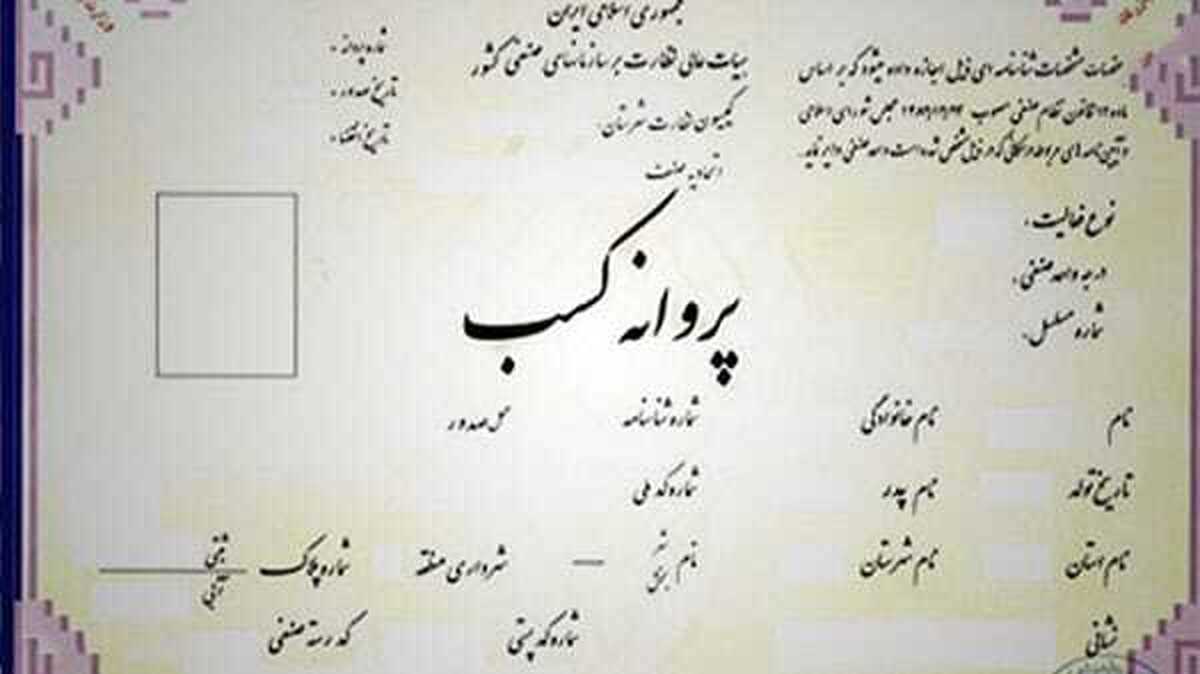 جمهوری اسلامی ایران
هیات عالی نظارت بر سازمانهای صنفی کشور
کمیسیون نظارت شهرستان:
اتحادیه صنف
شماره پروانه:
تاریخ صدور:
تاریخ انقضاء:
مشخصات شناسنامه ای ذیل اجازه داده میشود که بر اساس
ماده ۱۲ قانون نظام صنفی مصوب ۱۳۸۲/۱۲/۲۴ مجلس شورای اسلامی
و آیین نامه های مربوطه در مکانی که در ذیل مشخص شده است واحد صنفی دایر نماید.
نوع فعالیت:
درجه واحد صنفی:
شماره مسلسل:
پروانه کسب
نام نام خانوادگی شماره شناسنامه محل صدور
تاریخ تولد نام پدر شماره کد ملی
نام استان نام شهرستان نام شهر بخش — شهرداری منطقه شماره پلاک ثبتی آبی
نشانی شماره کد پستی کد رسته صنفی